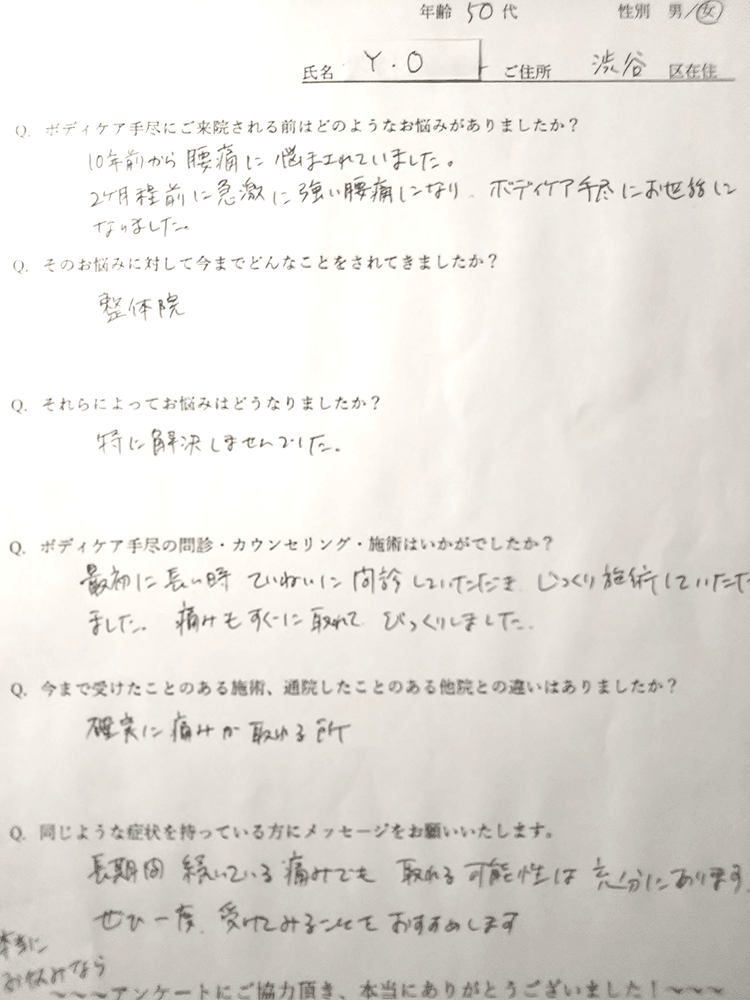 年齢 50 代 性別 男/女
氏名 Y.O ご住所 渋谷 区在住
Q. ボディケア手尽にご来院される前はどのようなお悩みがありましたか?
10年前から腰痛に悩まされていました。
2ヶ月程前に急激に強い腰痛になり、ボディケア手尽にお世話に
なりました。
Q. そのお悩みに対して今までどんなことをされてきましたか?
整体院
Q. それらによってお悩みはどうなりましたか?
特に解決しませんでした。
Q. ボディケア手尽の問診・カウンセリング・施術はいかがでしたか?
最初に長い時ていねいに問診していただき じっくり施術していただ
ました。痛みもすぐに取れて びっくりしました。
Q. 今まで受けたことのある施術、通院したことのある他院との違いはありましたか?
確実に痛みが取れる所
Q. 同じような症状を持っている方にメッセージをお願いいたします。
長期間 続いている痛みでも 取れる可能性は 充分にあります。
ぜひ一度、受けてみることをおすすめします
本当に
お悩みなら
~~~アンケートにご協力頂き、本当にありがとうございました!~~~